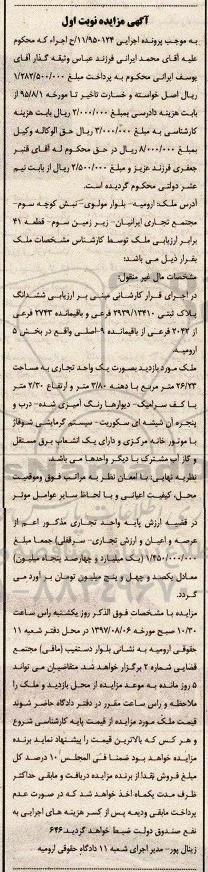 آگهی مزایده نوبت اول
به موجب پرونده اجرایی ۱۱/۹۵۰۱۲۴/ح اجراء که محکوم
علیه آقای محمد ایرانی فرزند عباس وثیقه گذار آقای
یوسف ایرانی محکوم به پرداخت مبلغ ۱/۲۸۲/۵۰۰/۰۰۰
ریال اصل خواسته و خسارت تاخیر تا مورخه ۹۵/۸/۱ از
بابت هزینه دادرسی بمبلغ ۲/۰۰۰/۰۰۰ ریال بابت هزینه
کارشناسی به مبلغ ۳/۰۰۰/۰۰۰ ریال حق الوکاله وکیل
به مبلغ ۸/۰۰۰/۰۰۰ ریال در حق محکوم له آقای قنبر
جعفری فرزند عزیز و مبلغ ۲/۵۰۰/۰۰۰ ریال از بابت نیم
عشر دولتی محکوم گردیده است.
آدرس ملک: ارومیه- بلوار مولوی-نبش کوچه سوم-
مجتمع تجاری ایرانیان- زیر زمین سوم- قطعه ۴۱
برابر ارزیابی ملک توسط کارشناس مشخصات ملک
بقرار ذیل می باشد؛
مشخصات مال غیر منقول:
در اجرای قرار کارشناسی مبنی بر ارزیابی ششدانگ
پلاک ثبتی ۲۹۳۹/۱۳۴۱۰ فرعی و باقیمانده ۲۷۴۳ فرعی
از ۲۰۴۲ فرعی از باقیمانده ۹-اصلی واقع در بخش ۵
ارومیه.
ملک مورد بازدید بصورت یک واحد تجاری به مساحت
۲۶/۲۳ متر مربع با دهنه ۳/۸۰ متر و ارتفاع ۲/۳۰ متر
با کف سرامیک- دیوارها رنگ آمیزی شده- درب و
پنجره آن شیشه ای سکوریت- سیستم گرمایشی شوفاژ
با موتور خانه مرکزی و دارای یک انشعاب برق مستقل
و گاز آب مشترک با دیگر واحدها می باشد.
نظریه نهایی: با امعان نظر به مراتب فوق وموقعیت
محل، کیفیت اعیانی و با لحاظ سایر عوامل موثر
در قضیه ارزش پایه واحد تجاری مذکور اعم از
عرصه و اعیان و ارزش تجاری- سرقفلی) جمعا مبلغ
۱/۴۵۰/۰۰۰/۰۰۰ (یک میلیارد و چهارصد پنجاه میلیون)
معادل یکصد و چهل و پنج میلیون تومان بر آورد می
گردد.
مزایده با مشخصات فوق الذکر روز یکشنبه راس ساعت
۱۰/۳۰ صبح مورخه ۱۳۹۷/۰۸/۰۶ در محل دفتر شعبه ۱۱
حقوقی ارومیه به نشانی بلوار دستغیب (مافی) مجتمع
قضایی شماره ۲ برگزار خواهد شد متقاضیان می توانند
۵ روز مانده به موعد مزایده از محل بازدید و ملک را
ملاحظه و راس ساعت مقرر در دفتر دادگاه حاضر شوند
قیمت ملک مورد مزایده از قیمت پایه کارشناسی شروع
و هر کس که بالاترین قیمت را پیشنهاد نماید برنده
مزایده خواهد بود ضمنا فی المجلس ۱۰ درصد کل
مبلغ فروش نقدا از برنده مزایده دریافت و مابقی حداکثر
ظرف مدت یکماه اخذ خواهد شد که در صورت عدم
پرداخت مابقی ودیعه پس از کسر هزینه های اجرایی به
نفع صندوق دولت ضبط خواهد گردید ۶۴۶
زینال پور- مدیر اجرای شعبه ۱۱ دادگاه حقوقی ارومیه